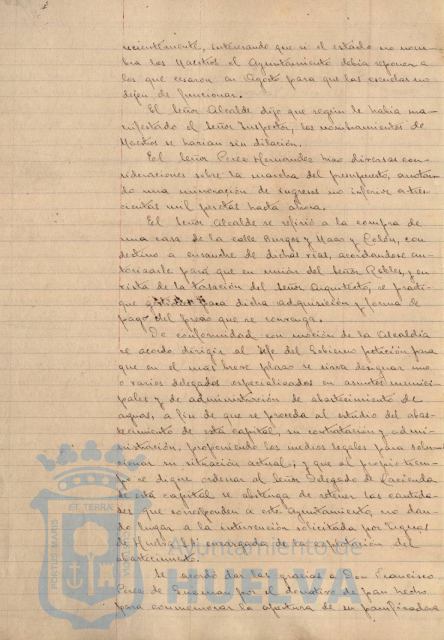 recientemente, interesando que si el estado no nom-
bra los Maestros el Ayuntamiento debia reponer a
los que cesaron en Agosto para que las escuelas no
dejen de funcionar.
El Señor Alcalde dijo que según le habia ma-
nifestado el Señor Inspector, los nombramientos de
Maestros se harian sin dilación.
El Señor Perez Hernandez hizo diversas con-
sideraciones sobre la marcha del presupuesto, anotan-
do una minoración de ingresos no inferior a tres-
cientas mil pesetas hasta ahora.
El Señor Alcalde se refirió a la compra de
una casa de la calle Burgos y Mazo y Colón, con
destino a ensanche de dichas vias, acordandose au-
torizarle para que en unión del Señor Robles, y en
vista de la tasación del Señor Arquitecto, se practi-
que para dicha adquisición y forma de
pago del precio que se convenga.
De conformidad con moción de la Alcaldia
se acordo dirigir al Jefe del Gobierno petición para
que en el mas breve plazo se sirva designar uno
o varios delegados especializados en asuntos munici-
pales y de administración de abastecimiento de
aguas, a fin de que se proceda al estudio del abas-
tecimiento de esta capital, su contratación y admi-
nistración, proponiendo los medios legales para solu-
cionar su situación actual; y que al propio tiem-
po se digne ordenar al Señor Delegado de Hacienda
de esta capital se abstenga de retener las cantida-
des que corresponden a este Ayuntamiento, no dan-
do lugar a la intervención solicitada por
de Huelva encargada de la explotación del
abastecimiento.
Se acordo dar las gracias a Don Francisco
Perez de Guzman por el donativo de pan hecho
para conmemorar la apertura de su panificadora
PORTUS MARIS
ET TERRAE
Ayuntamiento de
HUELVA